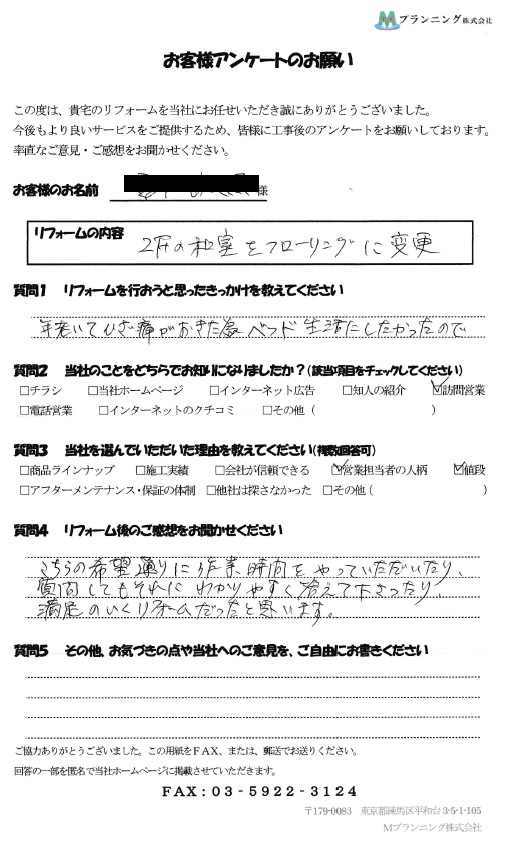 Mプランニング株式会社
お客様アンケートのお願い
この度は、貴宅のリフォームを当社にお任せいただき誠にありがとうございました。
今後もより良いサービスをご提供するため、皆様に工事後のアンケートをお願いしております。
率直なご意見・ご感想をお聞かせください。
お客様のお名前 様
リフォームの内容
2Fの和室をフローリングに変更
質問1 リフォームを行おうと思ったきっかけを教えてください
年老いてひざ痛がおきた為ベッド生活にしたかったので
質問2 当社のことをどちらでお知りになりましたか？(該当項目をチェックしてください)
□チラシ □当社ホームページ □インターネット広告 □知人の紹介 ☑訪問営業
□電話営業 □インターネットのクチコミ □その他（ ）
質問3 当社を選んでいただいた理由を教えてください(複数回答可)
□商品ラインナップ □施工実績 □会社が信頼できる ☑営業担当者の人柄 ☑値段
□アフターメンテナンス・保証の体制 □他社は探さなかった □その他（ ）
質問4 リフォーム後のご感想をお聞かせください
こちらの希望通りに作業時間をやっていただいたり、
質問してもそれにわかりやすく答えて下さったり、
満足のいくリフォームだったと思います。
質問5 その他、お気づきの点や当社へのご意見を、ご自由にお書きください
ご協力ありがとうございました。この用紙をFAX、または、郵送でお送りください。
回答の一部を匿名で当社ホームページに掲載させていただきます。
FAX：03-5922-3124
〒179-0083 東京都練馬区平和台3-5-1-105
Mプランニング株式会社